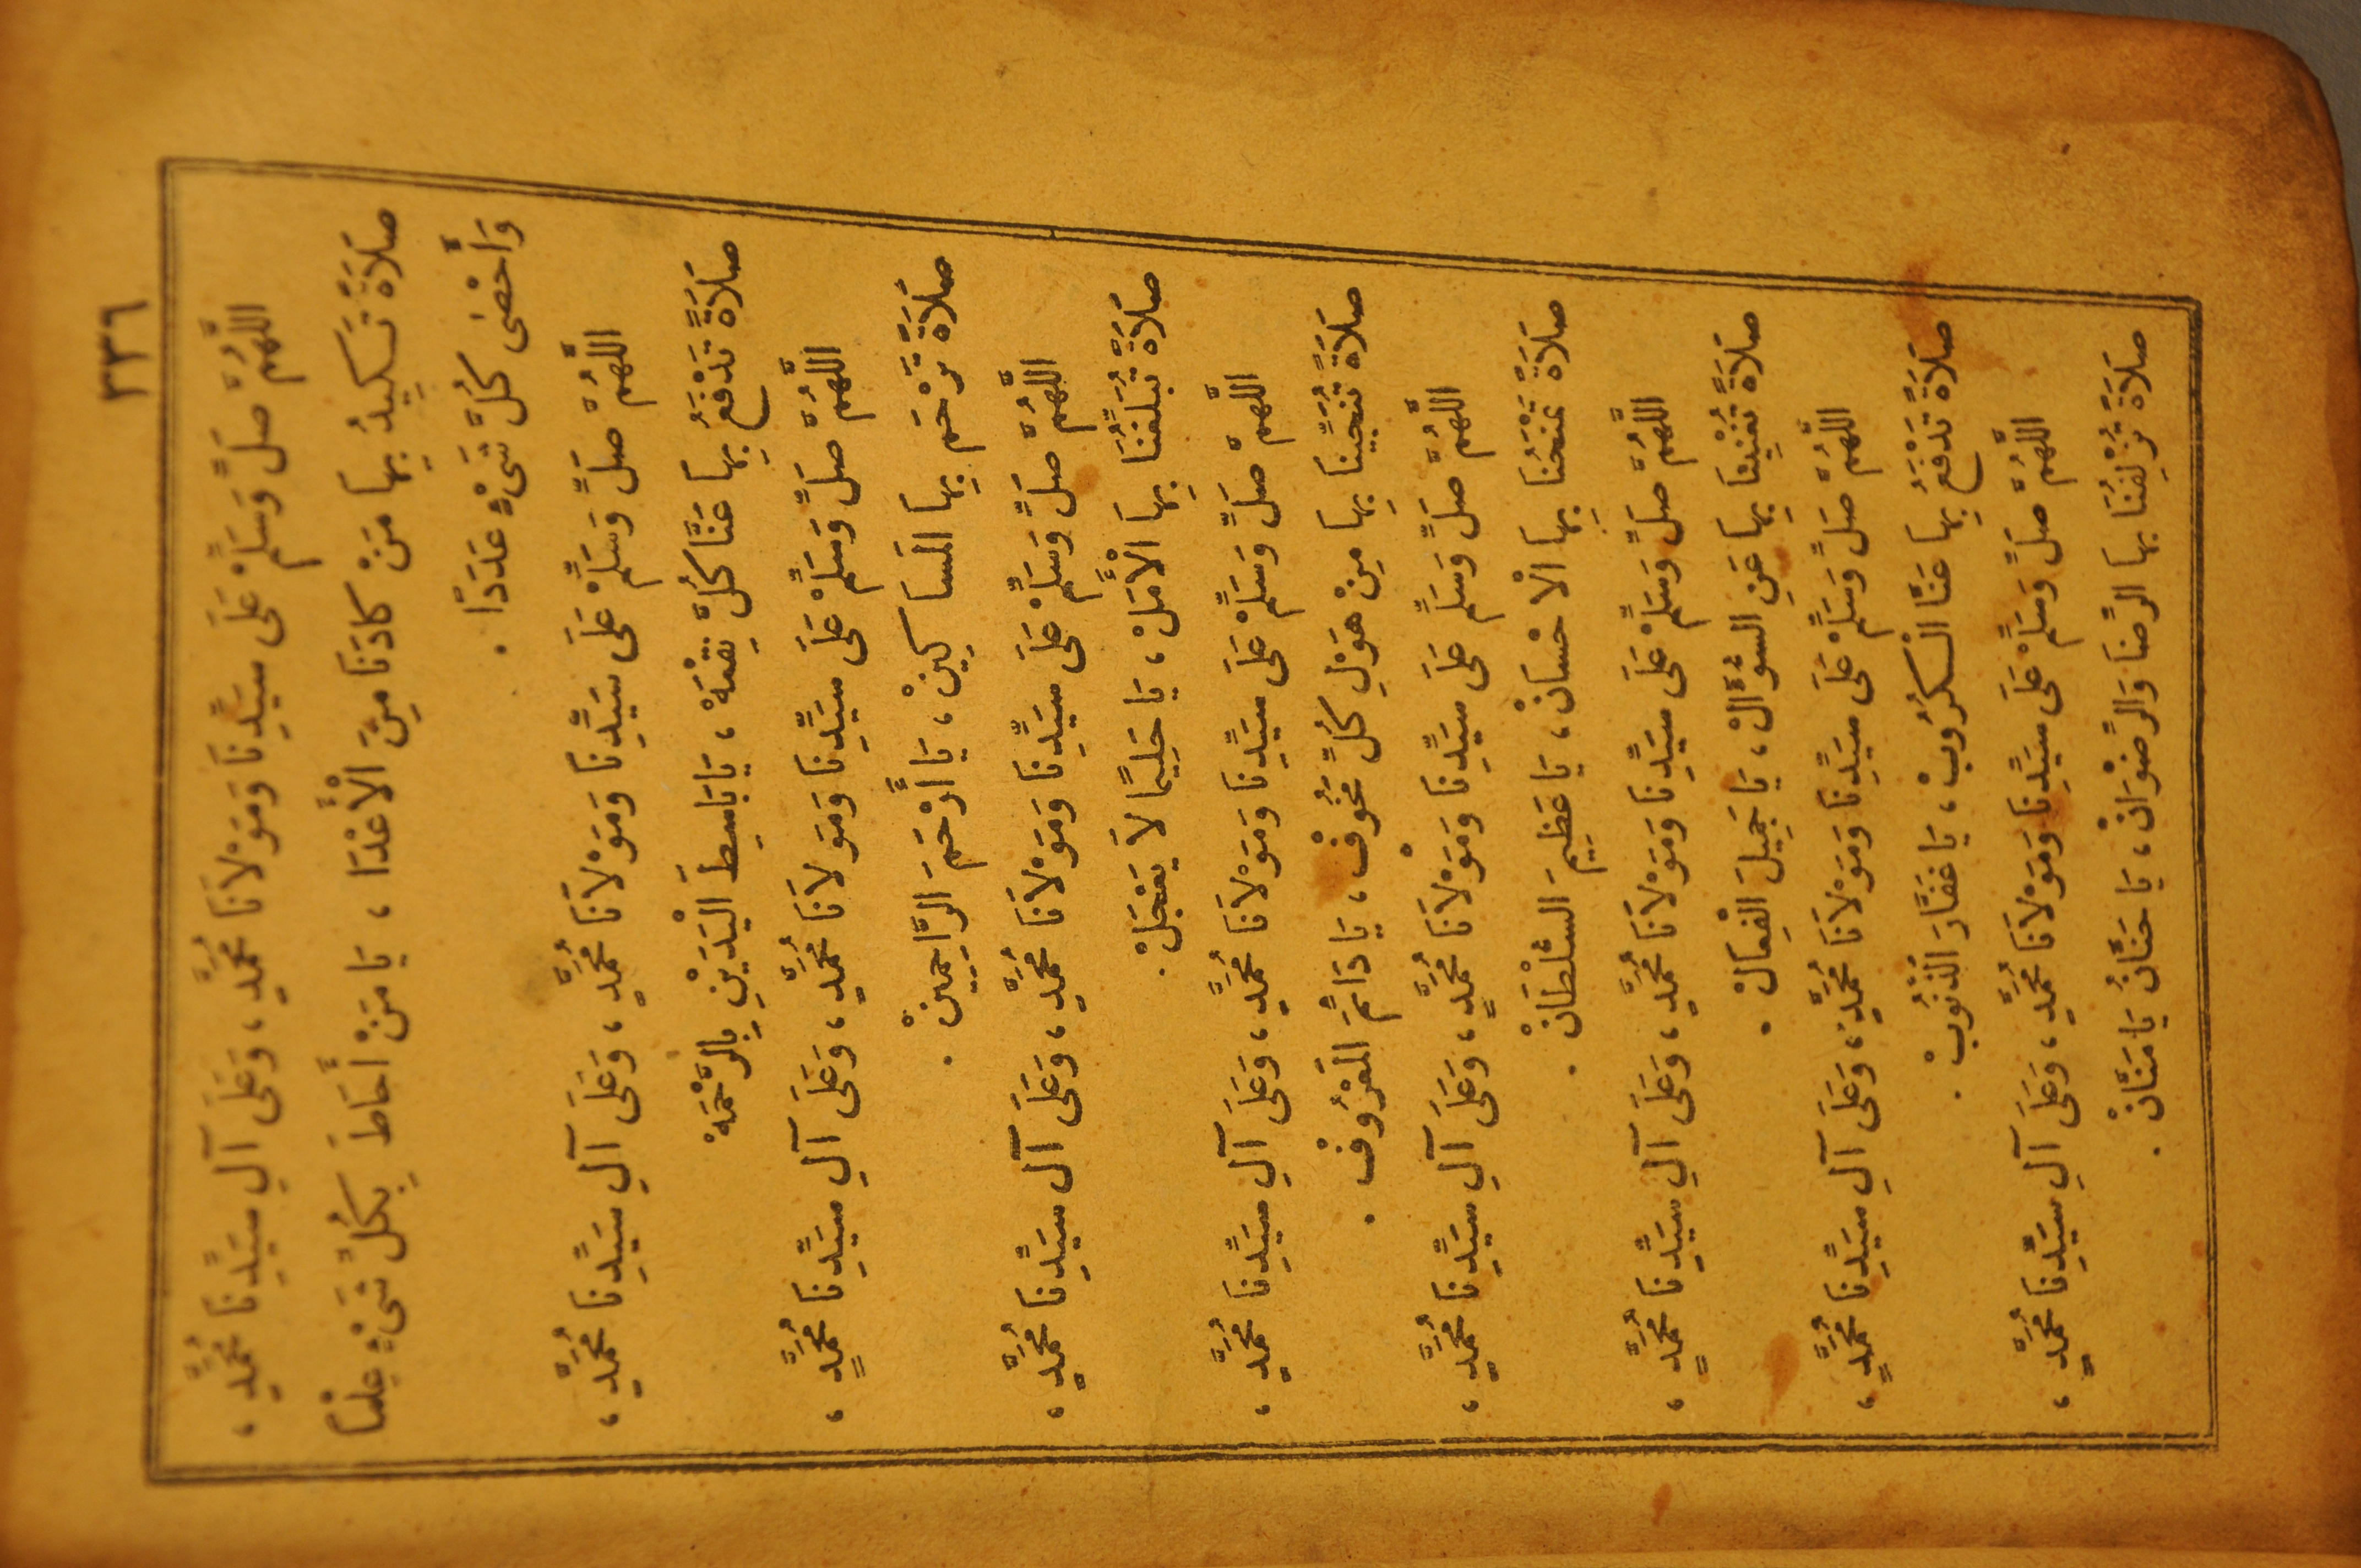 ٣٣٦
اللَّهُمَّ صَلِّ وَسَلِّمْ عَلَى سَيِّدِنَا وَمَوْلاَنَا مُحَمَّدٍ، وَعَلَى آلِ سَيِّدِنَا مُحَمَّدٍ،
صَلاَةً تَكِيدُ بِهَا مَنْ كَادَنَا مِنَ الْأَعْدَا، يَا مَنْ أَحَاطَ بِكُلِّ شَىْءٍ عِلْمًا
وَأَحْصَى كُلَّ شَىْءٍ عَدَدًا.
اللَّهُمَّ صَلِّ وَسَلِّمْ عَلَى سَيِّدِنَا وَمَوْلاَنَا مُحَمَّدٍ، وَعَلَى آلِ سَيِّدِنَا مُحَمَّدٍ،
صَلاَةً تَدْفَعُ بِهَا عَنَّا كُلَّ نِقْمَهْ، يَا بَاسِطَ الْيَدَيْنِ بِالرَّحْمَهْ
اللَّهُمَّ صَلِّ وَسَلِّمْ عَلَى سَيِّدِنَا وَمَوْلاَنَا مُحَمَّدٍ، وَعَلَى آلِ سَيِّدِنَا مُحَمَّدٍ،
صَلاَةً تَرْحَم بِهَا المَسَاكِينْ، يَا أَرْحَمَ الرَّاحِمِينْ.
اللَّهُمَّ صَلِّ وَسَلِّمْ عَلَى سَيِّدِنَا وَمَوْلاَنَا مُحَمَّدٍ، وَعَلَى آلِ سَيِّدِنَا مُحَمَّدٍ،
صَلاَةً تُبَلِّغُنَا بِهَا الْأَمَلْ، يَا حَلِيمًا لاَ يَعْجَلْ.
اللَّهُمَّ صَلِّ وَسَلِّمْ عَلَى سَيِّدِنَا وَمَوْلاَنَا مُحَمَّدٍ، وَعَلَى آلِ سَيِّدِنَا مُحَمَّدٍ،
صَلاَةً تُنَجِّينَا بِهَا مِنْ هَوْلِ كُلِّ مَخُوفْ، يَا دَائِمَ المَعْرُوفْ.
اللَّهُمَّ صَلِّ وَسَلِّمْ عَلَى سَيِّدِنَا وَمَوْلاَنَا مُحَمَّدٍ، وَعَلَى آلِ سَيِّدِنَا مُحَمَّدٍ،
صَلاَةً تَمْنَحُنَا بِهَا الْاحْسَانْ، يَا عَظِيمَ السُّلْطَانْ.
اللَّهُمَّ صَلِّ وَسَلِّمْ عَلَى سَيِّدِنَا وَمَوْلاَنَا مُحَمَّدٍ، وَعَلَى آلِ سَيِّدِنَا مُحَمَّدٍ،
صَلاَةً تُغْنِينَا بِهَا عَنِ السُّؤَالْ، يَا جَمِيلَ الْفِعَالْ.
اللَّهُمَّ صَلِّ وَسَلِّمْ عَلَى سَيِّدِنَا وَمَوْلاَنَا مُحَمَّدٍ، وَعَلَى آلِ سَيِّدِنَا مُحَمَّدٍ،
صَلاَةً تَدْفَعُ بِهَا عَنَّا الْكُرُوبْ، يَا غَفَّارَ الذُّنُوبْ.
اللَّهُمَّ صَلِّ وَسَلِّمْ عَلَى سَيِّدِنَا وَمَوْلاَنَا مُحَمَّدٍ، وَعَلَى آلِ سَيِّدِنَا مُحَمَّدٍ،
صَلاَةً تُزْلِفُنَا بِهَا الرِّضَا وَالرِّضْوَانْ، يَا حَنَّانُ يَا مَنَّانْ.